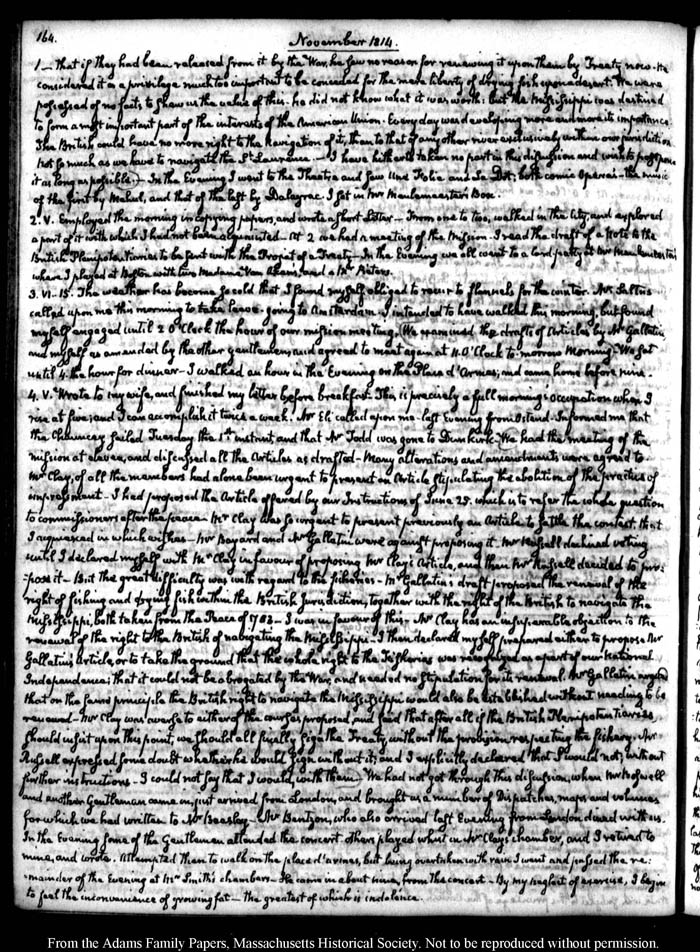 164.
November 1814.
1 — that if they had been released from it by the War, he saw no reason for renewing it upon them by Treaty now. He
considered it as a privilege much too important to be conceded for the mere liberty of drying fish upon a desert. We were
possessed of no facts to shew us the value of this. he did not know what it was worth: but the Mississippi was destined
to form a most important part of the interests of the American Union. Every day was developing more and more its importance.
The British could have no more right to the navigation of it, than to that of any other river exclusively within our jurisdiction.
not so much as we have to navigate the St Lawrence. — I have hitherto taken no part in this discussion and wish to postpone
it as long as possible. — In the Evening I went to the Theatre and saw Une Folie and Le Dot; both comic Operas — the music
of the first by Mehul, and that of the last by Dalayrac. I sat in Mr Meulemeester's Box.
2. V. Employed the morning in copying papers, and wrote a short Letter — From one to two, walked in the City, and explored
a part of it with which I had not been acquainted — At 2 we had a meeting of the Mission — I read the draft of a Note to the
British Plenipotentiaries to be sent with the Projet of a Treaty — In the Evening we all went to a card party at Mr Meulemeester's
where I played at Boston with two Madame Van Akens, and a Mr Peters.
3. VI-15. The weather has become so cold that I found myself obliged to recur to flannels for the winter. Mr
called upon me this morning to take leave. going to Amsterdam. I intended to have walked this morning, but found
myself engaged until 2 O'Clock the hour of our mission meeting. We examined the drafts of Articles by Mr Gallatin,
and myself as amended by the other gentlemen, and agreed to meet again at 11. O'Clock to-morrow Morning. We sat
until 4. the hour for dinner — I walked an hour in the Evening on the Place d'Armes; and came home before nine.
4. V. Wrote to my wife, and finished my letter before breakfast. This is precisely a full morning's occupation when I
rise at five; and I can accomplish it twice a week. Mr called upon me last Evening from Ostend. Informed me that
the Chauncey sailed Tuesday the 1st instant, and that Mr Todd was gone to Dunkirk. We had the meeting of the
mission at eleven, and discussed all the Articles as drafted — Many alterations and amendments were agreed to.
Mr Clay, of all the members had alone been urgent to present an Article stipulating the abolition of the practice of
impressment — I had proposed the Article offered by our Instructions of June 25. which is to refer the whole question
to commissioners after the peace — Mr Clay was so urgent to present previously an Article to settle the contest, that
I acquiesced in which wishes — Mr Bayard and Mr Gallatin were against proposing it. Mr Russell declined voting
until I declared myself with Mr Clay in favour of proposing Mr Clay's Article, and then Mr Russell decided to pro:
:pose it — But the great difficulty was with regard to the fisheries — Mr Gallatin's draft proposed the renewal of the
right of fishing and drying fish within the British Jurisdiction, together with the right of the British to navigate the
Mississippi, both taken from the Peace of 1783 — I was in favour of this — Mr Clay has an insuperable objection to the
renewal of the right to the British of navigating the Mississippi. I then declared myself prepared either to propose Mr
Gallatin's Article, or to take the ground that the whole right to the Fisheries was recognized as a part of our National
Independence; that it could not be abrogated by the War, and needed no stipulation for its renewal. Mr Gallatin argued
that on the same principle the British right to navigate the Mississippi would also be established without needing to be
renewed — Mr Clay was averse to either of the courses proposed, and said that after all if the British Plenipotentiaries
should insist upon this point, we should all finally sign the Treaty, without the provision respecting the fishery. Mr
Russell expressed some doubt whether he would sign without it; and I explicitly declared that I would not, without
further instructions — I could not say that I would, with them — We had not got through this discussion, when Mr Boswell
and another Gentleman came in, just arrived from London, and brought us a number of Dispatches, maps and volumes
for which we had written to Mr Beasley. Mr Bentzon, who also arrived last Evening from London dined with us.
In the Evening some of the Gentlemen attended the concert. others played whist in Mr Clay's chamber, and I retired to
mine, and wrote. Attempted then to walk on the place d'armes, but being overtaken with rain I went and passed the re:
:mainder of the Evening at Mr Smith's chambers — He came in about nine, from the concert — By my neglect of exercise, I begin
to feel the inconvenience of growing fat — the greatest of which is indolence.
From the Adams Family Papers, Massachusetts Historical Society. Not to be reproduced without permission.